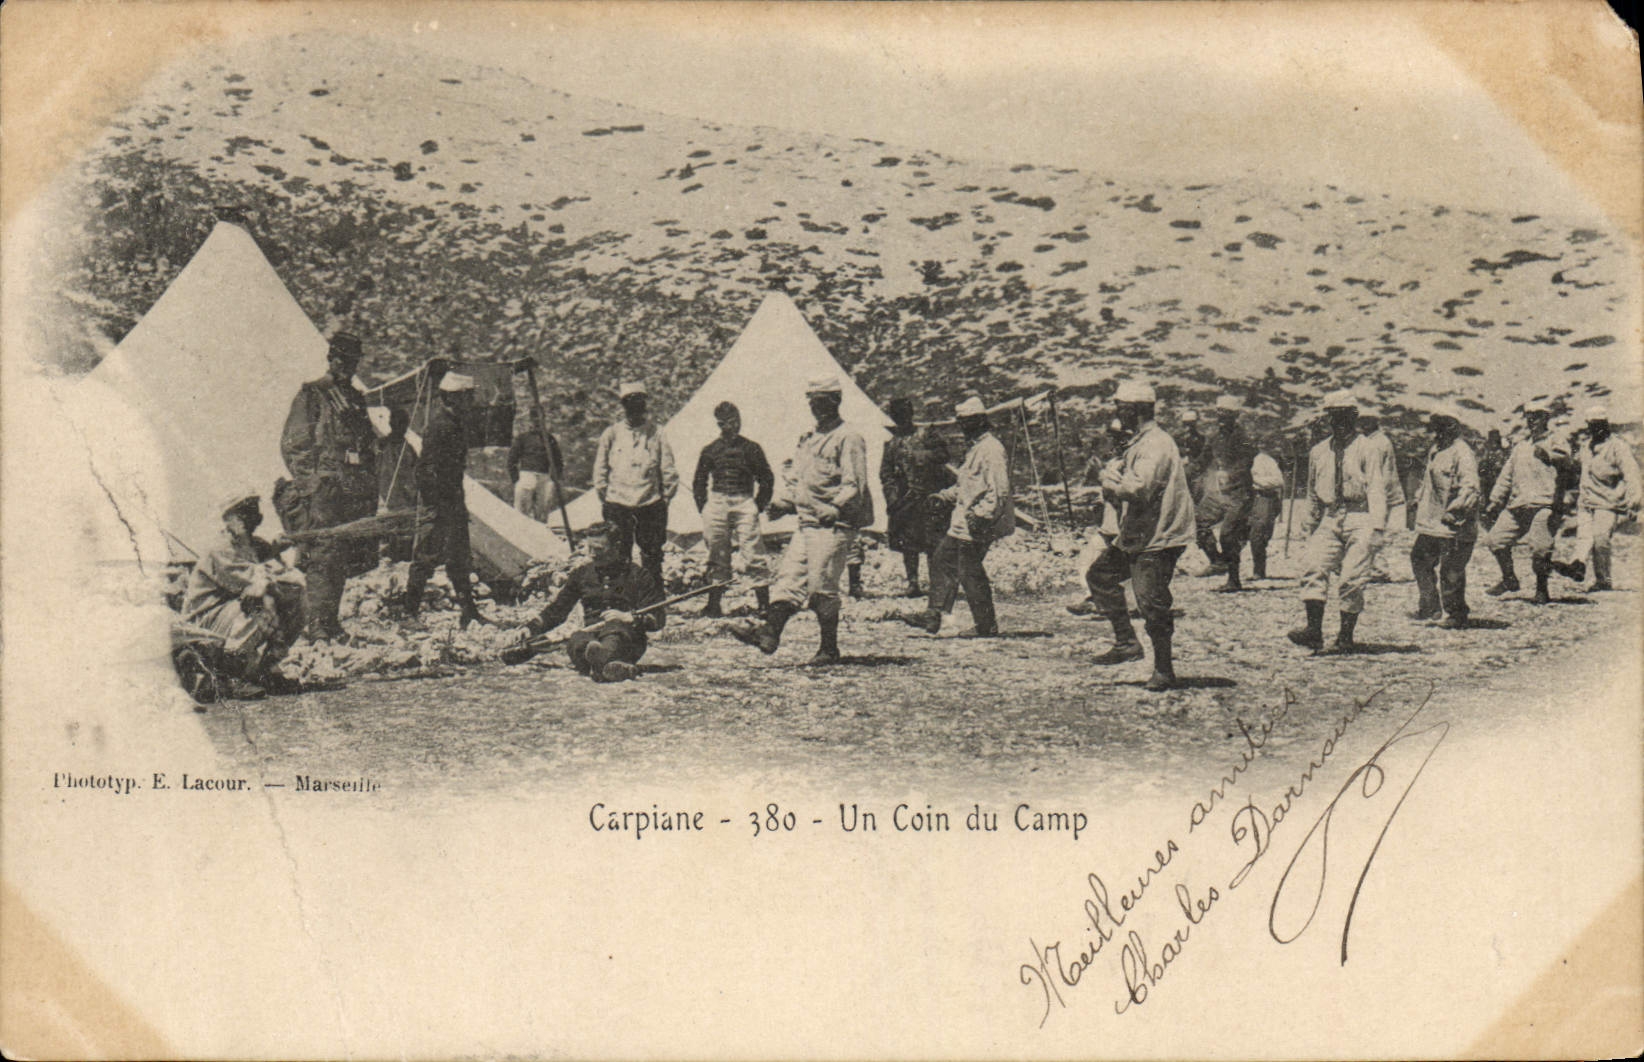 Phototyp. E. Lacour. — Marseille
Carpiane - 380 - Un Coin du Camp
Meilleures amitiés
Charles Darnaux